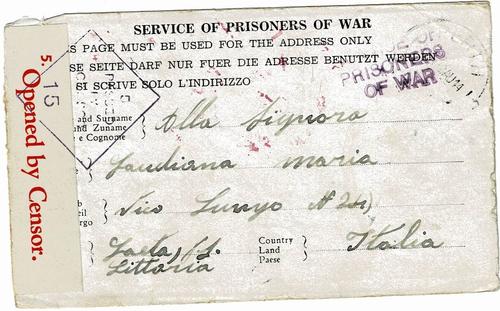 SERVICE OF PRISONERS OF WAR
S PAGE MUST BE USED FOR THE ADDRESS ONLY
SE SEITE DARF NUR FUER DIE ADRESSE BENUTZT WERDEN
SI SCRIVE SOLO L'INDIRIZZO
PRISONERS
OF WAR
15
5.
Opened by Censor.
and Surname
und Zuname
e Cognome
Alla Signora
Maria
Vico Lungo
Gaeta
Littoria
Country
Land
Paese
Italia